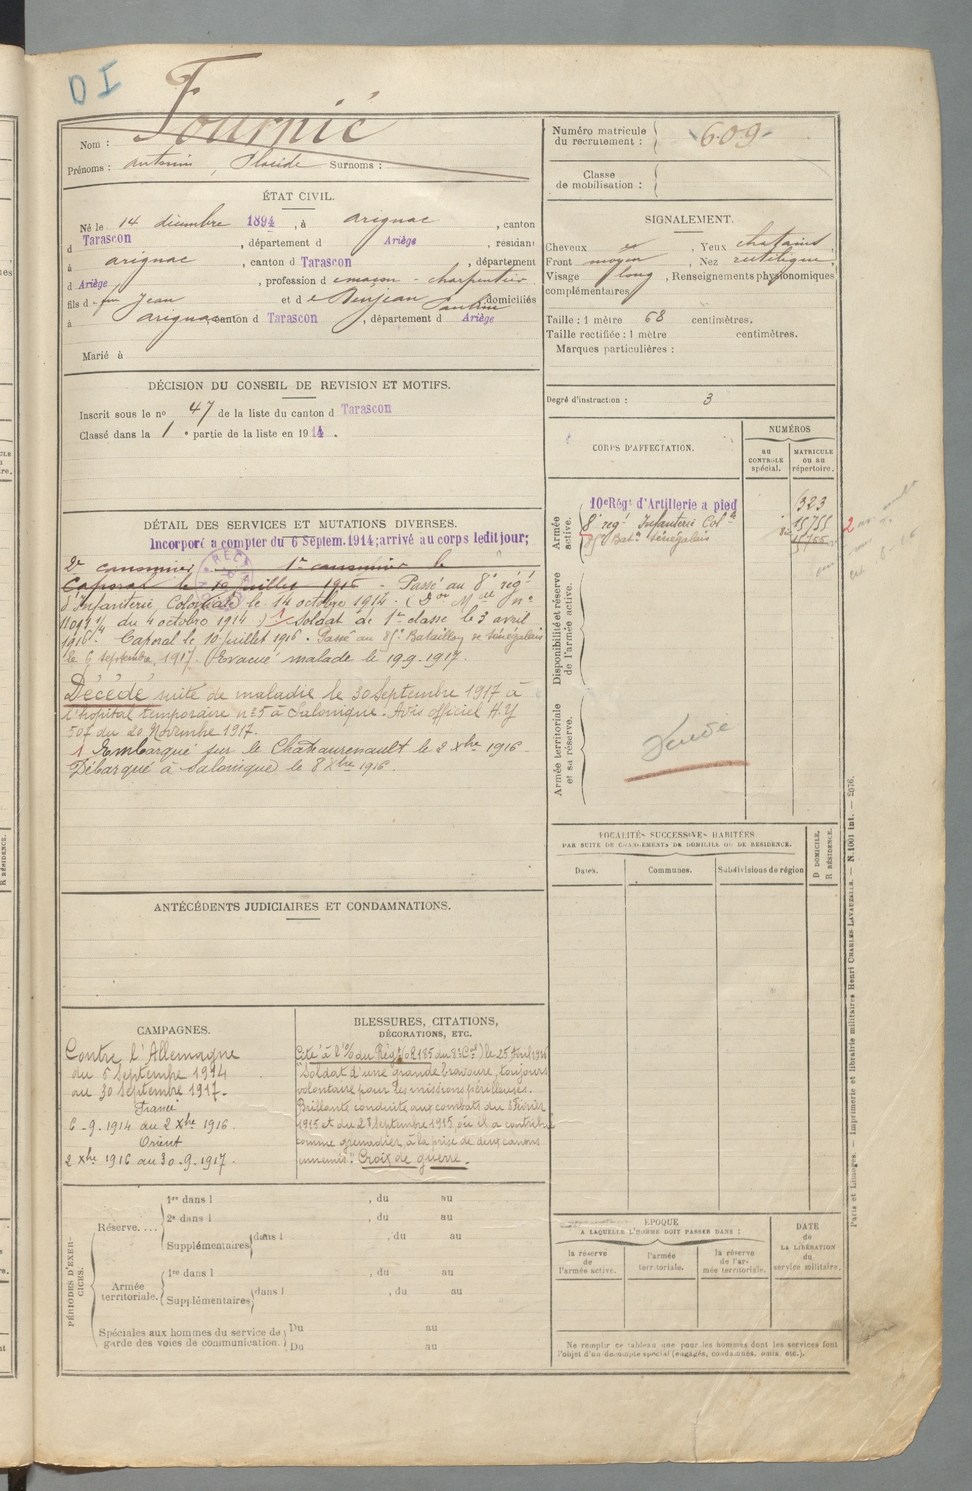 D I
Fournié
Nom :
Prénoms : Antonin, Placide Surnoms :
ÉTAT CIVIL.
Né le 14 décembre 1894, à Arignac, canton
d Tarascon, département d Ariège, résidant
à Arignac, canton d Tarascon, département
d Ariège, profession de maçon - charpentier
fils d feu Jean et de Benjean Pauline domiciliés
à Arignac, canton d Tarascon, département d Ariège
Marié à
DÉCISION DU CONSEIL DE REVISION ET MOTIFS.
Inscrit sous le no 47 de la liste du canton d Tarascon
Classé dans la 1 e partie de la liste en 1914.
DÉTAIL DES SERVICES ET MUTATIONS DIVERSES.
Incorporé a compter du 6 Septem. 1914; arrivé au corps ledit jour;
2e canonnier 1er canonnier le
Caporal le 10 juillet 1916 - Passé au 8e régt
d'Infanterie Coloniale le 14 octobre 1914. (Don Mlle no
11091 1/1 du 4 octobre 1914.) 1 Soldat de 1re classe le 3 avril
1916. Caporal le 10 juillet 1916. Passé au 85e Bataillon de Sénégalais
le 6 septembre 1917. Evacué malade le 19.9.1917.
Décédé suite de maladie le 30 Septembre 1917 à
l'hôpital temporaire no 5 à Salonique. Avis officiel H.Y
507 du 20 Novembre 1917.
1 Embarqué sur le Chateaurenault le 2 Xbre 1916.
Débarqué à Salonique le 8 Xbre 1916.
ANTÉCÉDENTS JUDICIAIRES ET CONDAMNATIONS.
CAMPAGNES.
Contre l'Allemagne
du 6 Septembre 1914
au 30 Septembre 1917.
France
6-9-1914 au 2 Xbre 1916.
Orient
2 Xbre 1916 au 30-9-1917.
BLESSURES, CITATIONS,
DÉCORATIONS, ETC.
Cité à l'O/ du Régt (ol 185 du 8e Cal) le 25 Avril 1916
"Soldat d'une grande bravoure, toujours
volontaire pour les missions périlleuses.
Brillante conduite aux combats du 3 Février
1915 et du 28 Septembre 1915, où il a contribué
comme grenadier à la prise de deux canons
ennemis." Croix de guerre.
PÉRIODES D'EXERCICES.
Réserve....
1re dans l , du au
2e dans l , du au
Supplémentaires dans l , du au
Armée territoriale.
1re dans l , du au
Supplémentaires dans l , du au
Spéciales aux hommes du service de garde des voies de communication.
Du au
Du au
Numéro matricule
du recrutement : 609
Classe
de mobilisation :
SIGNALEMENT.
Cheveux et, Yeux chatains,
Front moyen, Nez rectiligne,
Visage long, Renseignements physionomiques
complémentaires
Taille : 1 mètre 68 centimètres.
Taille rectifiée : 1 mètre centimètres.
Marques particulières :
Degré d'instruction : 3
CORPS D'AFFECTATION.
NUMÉROS
AU CONTROLE spécial.
MATRICULE OU AU répertoire.
Armée active.
10e Régt d'Artillerie a pied 323
8e régt Infanterie Colle 15755
85e Batn Sénégalais 15755
2
Disponibilité et réserve de l'armée active.
Armée territoriale et sa réserve.
LOCALITÉS SUCCESSIVES HABITÉES
PAR SUITE DE CHANGEMENTS DE DOMICILE OU DE RESIDENCE.
Dates.
Communes.
Subdivisions de région
D DOMICILE.
R RÉSIDENCE.
EPOQUE
A LAQUELLE L'HOMME DOIT PASSER DANS :
la réserve de l'armée active.
l'armée territoriale.
la réserve de l'armée territoriale.
DATE de LA LIBÉRATION du service militaire.
Ne remplir ce tableau que pour les hommes dont les services font
l'objet d'un décompte spécial (engagés, condamnés, omis, etc.).
Paris et Limoges. — Imprimerie et librairie militaires Henri CHARLES-LAVAUZELLE. — N. 1001 int. — 2076.